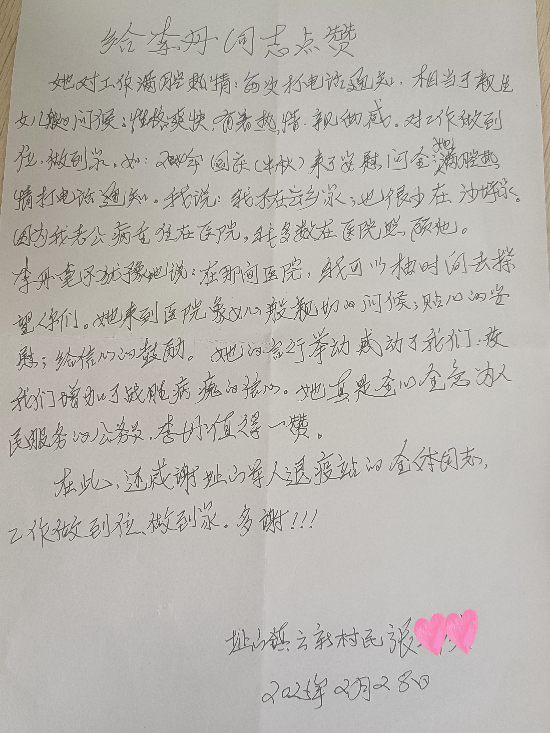 给李丹同志点赞
她对工作满腔热情：每次打电话通知，相当于亲生
女儿般问候；性格爽快，有着热情、亲切感。对工作做到
位，做到家。如：年国庆(中秋)来了安慰问金；她满腔热
情打电话通知。我说：我不在云乡家；也很少在沙坪家。
因为我老公病重住在医院，我多数在医院照顾他。
李丹毫不犹豫地说：在那间医院，我可以抽时间去探
望你们。她来到医院象女儿般亲切的问候；贴心的安
慰；给信心的鼓励。她的言行举动感动了我们，及
我们增加了战胜病魔的信心。她真是全心全意为人
民服务的公务员，李丹值得一赞。
在此，还感谢址山军人退役站的全体同志，
工作做到位、做到家。多谢!!!
址山镇云新村民张
2025年2月28日